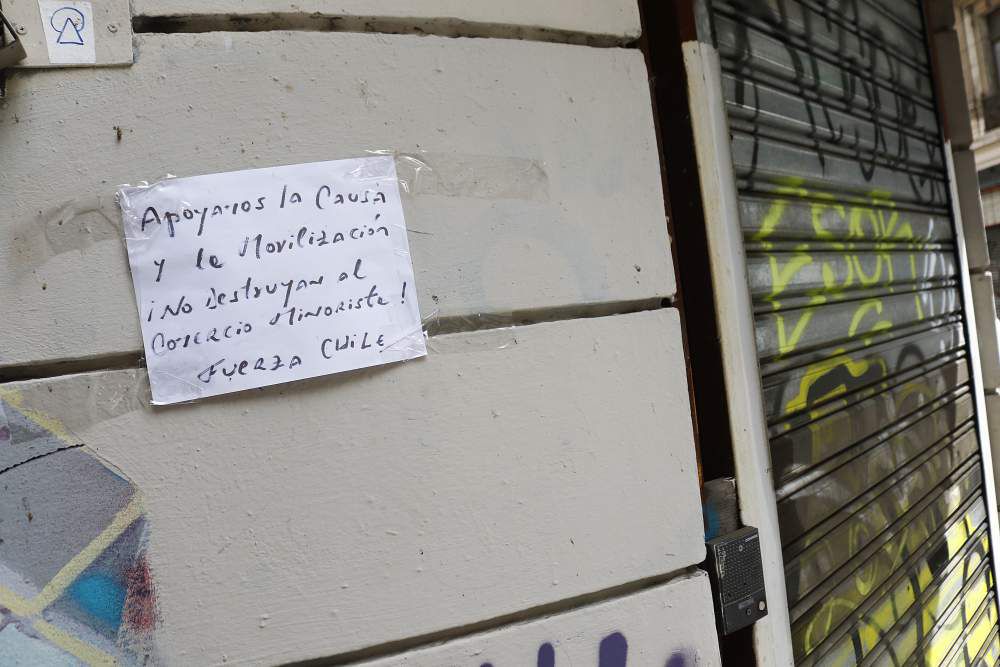 Apoyamos la Causa
y la Movilización
¡No destruyan al
Comercio Minorista!
Fuerza CHILE